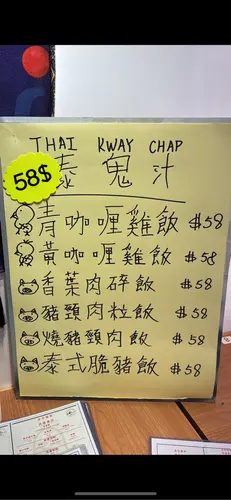 THAI KWAY CHAP
泰鬼汁
58$
青咖喱雞飯 $58
黃咖喱雞飯 $58
香葉肉碎飯 $58
豬頸肉粒飯 $58
燒豬頸肉飯 $58
泰式脆豬飯 $58